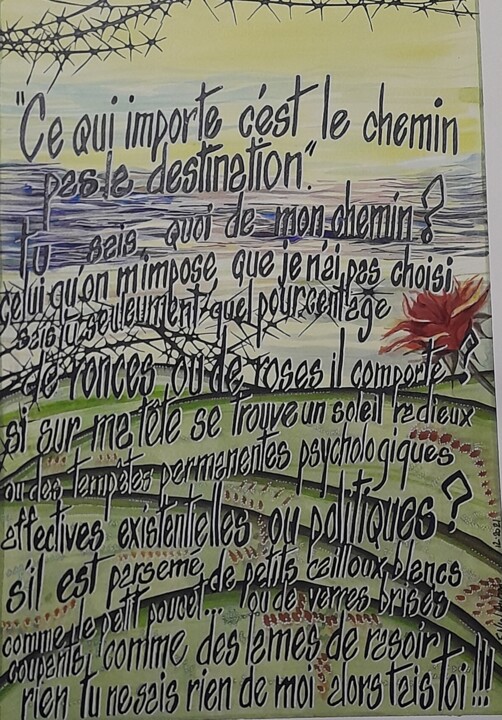 "Ce qui importe c'est le chemin
pas la destination".
tu sais quoi de mon chemin ?
celui qu'on m'impose, que je n'ai pas choisi
sais tu seuleument quel pourcentage
de ronces ou de roses il comporte ?
si sur ma tête se trouve un soleil radieux
ou des tempêtes permanentes psychologiques
affectives existentielles ou politiques ?
s'il est parsemé de petits cailloux blancs
comme le petit poucet... ou de verres brisés
coupants, comme des lames de rasoir
rien tu ne sais rien de moi alors tais toi !!!